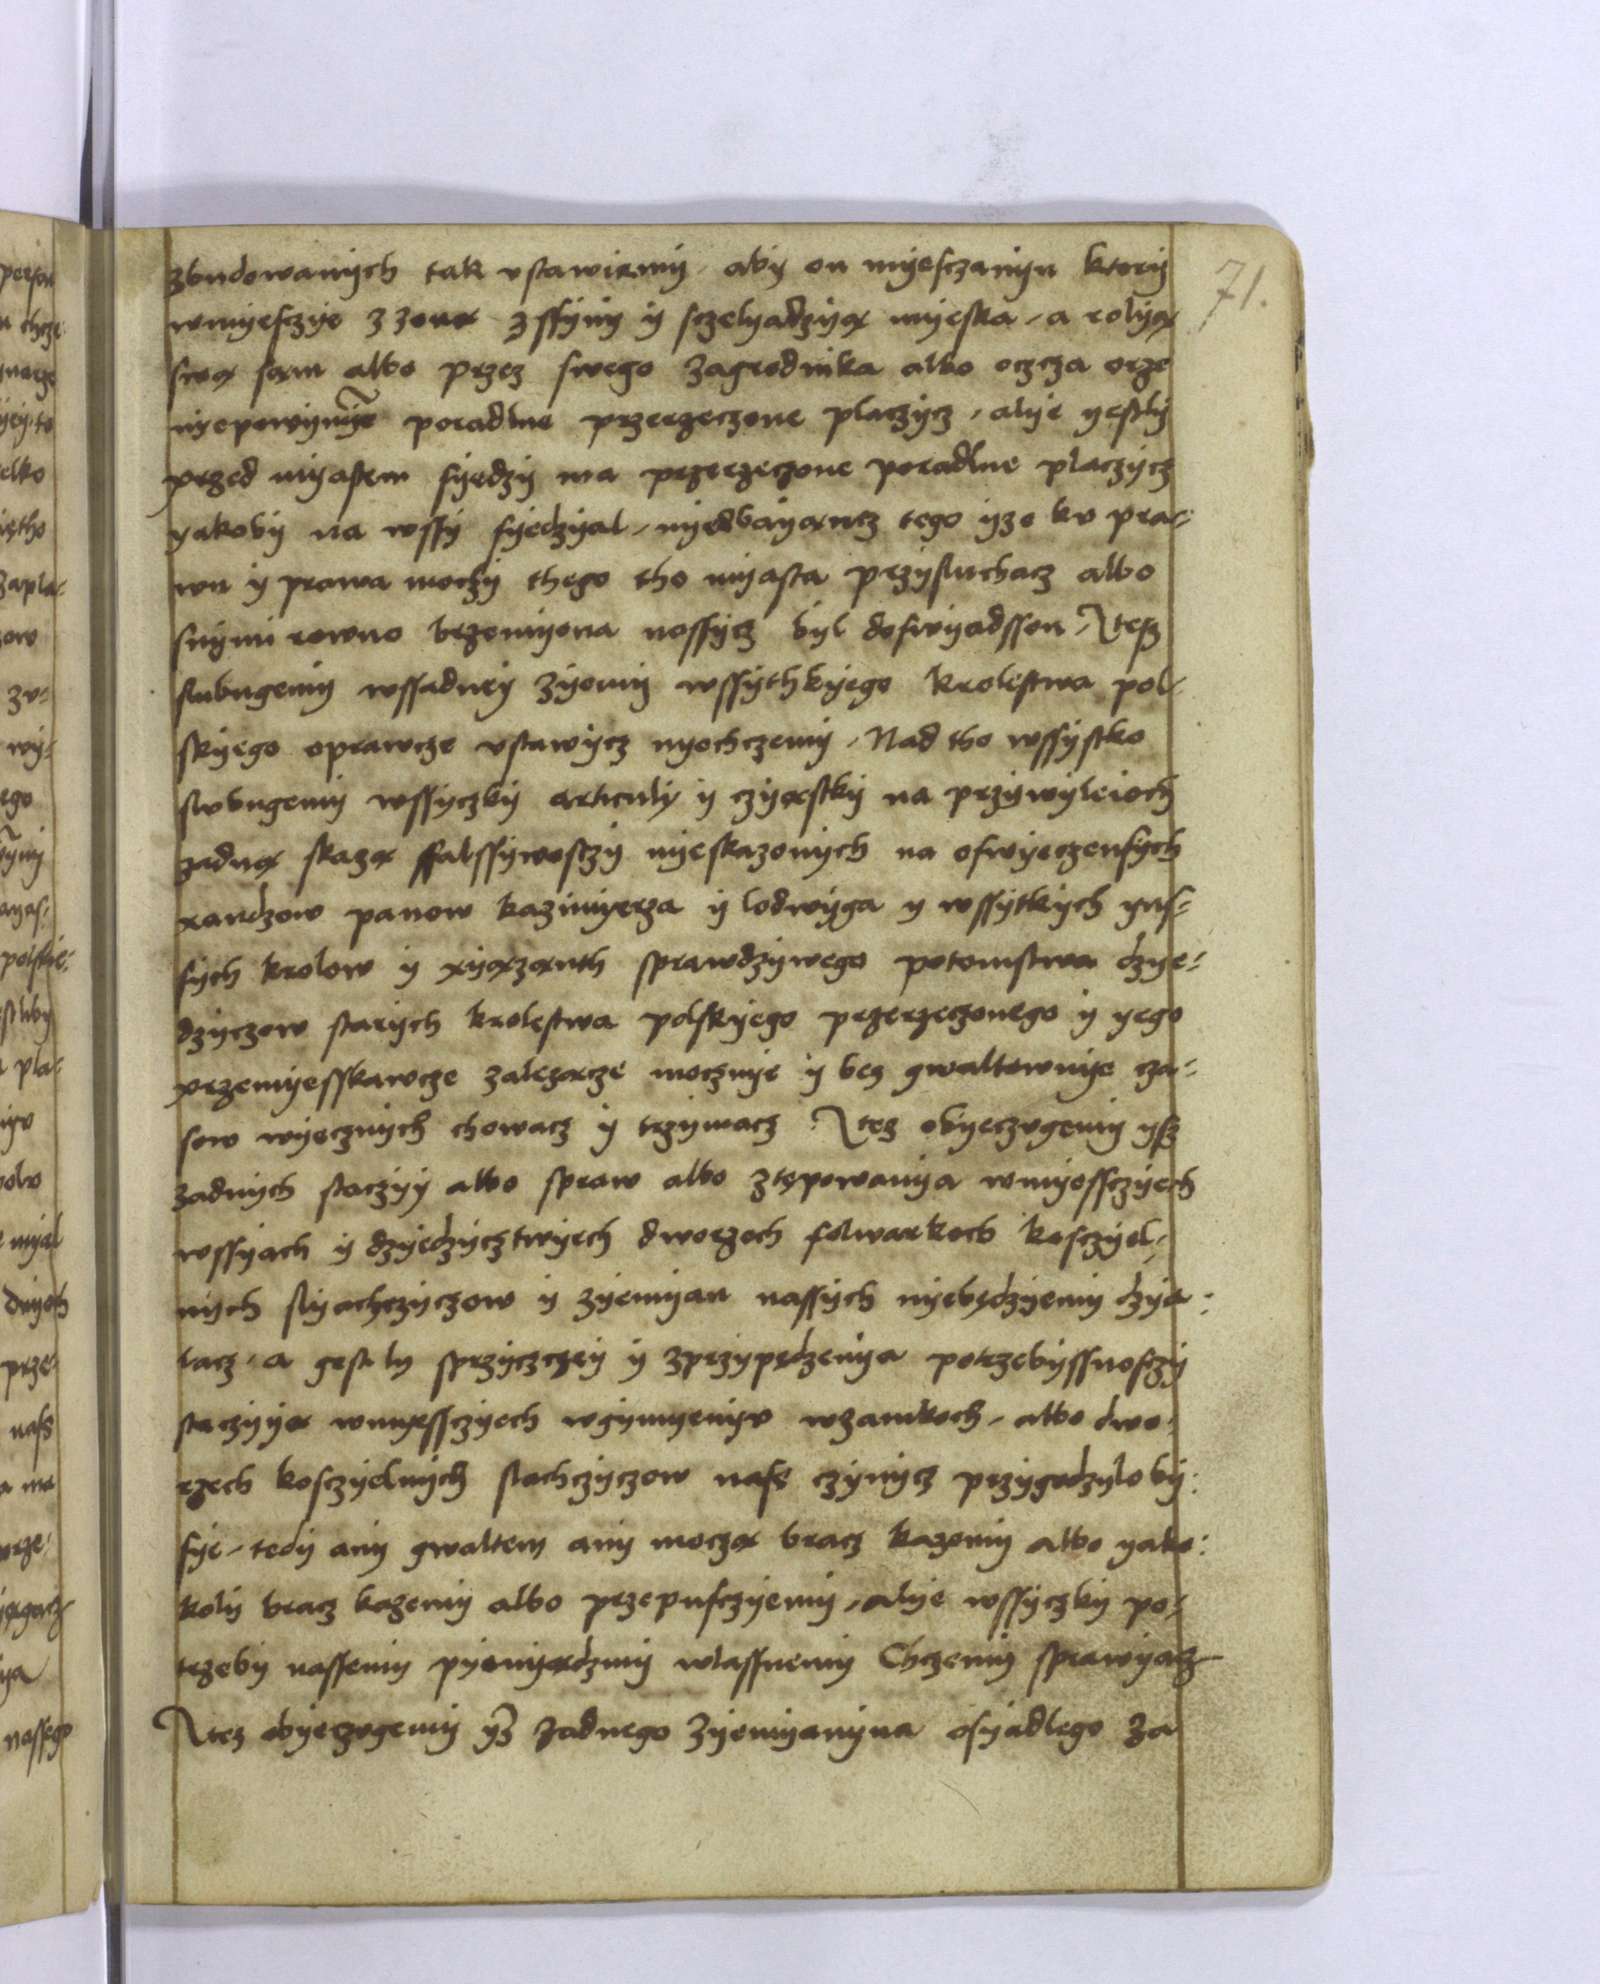 71.
zbudowanych tak vstawiemy, aby on myesczanyn ktory
wmyesczye z zoną z ssyny y sczelyadzyą myeska, a rolyą
swą sam albo przez swego zagrodnika albo oczcza orze
nyepowynye poradlne przerzeczone placzycz, alye yestly
przed myastem syedzy ma przerzeczone poradlne placzycz
yakoby na wssy syedzyal, nyedbayącz tego yze ku pra-
wu y prawa moczy thego tho myasta przysluchacz albo
snymi rowno brzemyona nossycz byl doswyadsson, Itesz
slubugemy wssadney zyemy wssythkyego krolestwa pol-
skyego oprawcze vstawycz nyechczemy, Nad tho wssystko
slvbugemy wssyczky articuly y czyąstky na przywyleioch
zadną skazą ffalssywosczy nyeskazonych na oswyeczensych
xandzow panow kazimyerza y lodwyga y wssytkych yns-
sych krolow y xyązanth sprawdzywego potomstwa dzye-
dzyczow starych krolestwa polskyego przerzeczonego y yego
przemyesskawcze zalezącze mocznye y bes gwaltownye cza-
sow wyecznych chowacz y trzymacz Itez obyeczvgemy ysz
zadnych staczyy albo spraw albo ztępowanya wmyessczyech
wssyach y dzyedzycztwyech dworzech folwarkoch kosczyel-
nych slyachczyczow y zyemyan nassych nyebędzyemy dzya-
lacz, a gestly sprzyczczey y zprzypędzenya potrzebyssnosczy
staczyyą wmyessczyech wgymyenyv wzamkoch, albo dwo-
rzech kosczyelnych slachczyczow nass czynycz przygodzyloby
sye, tedy any gwaltem any moczą bracz kazemy albo yako-
koly bracz kazemy albo przepusczyemy, alye wssyczky po-
trzeby nassemy pyenyądzmy wlassnemy Chczemy sprawyacz
Itez obyeczvgemy ysz zadnego zyemyanyna osyadlego za